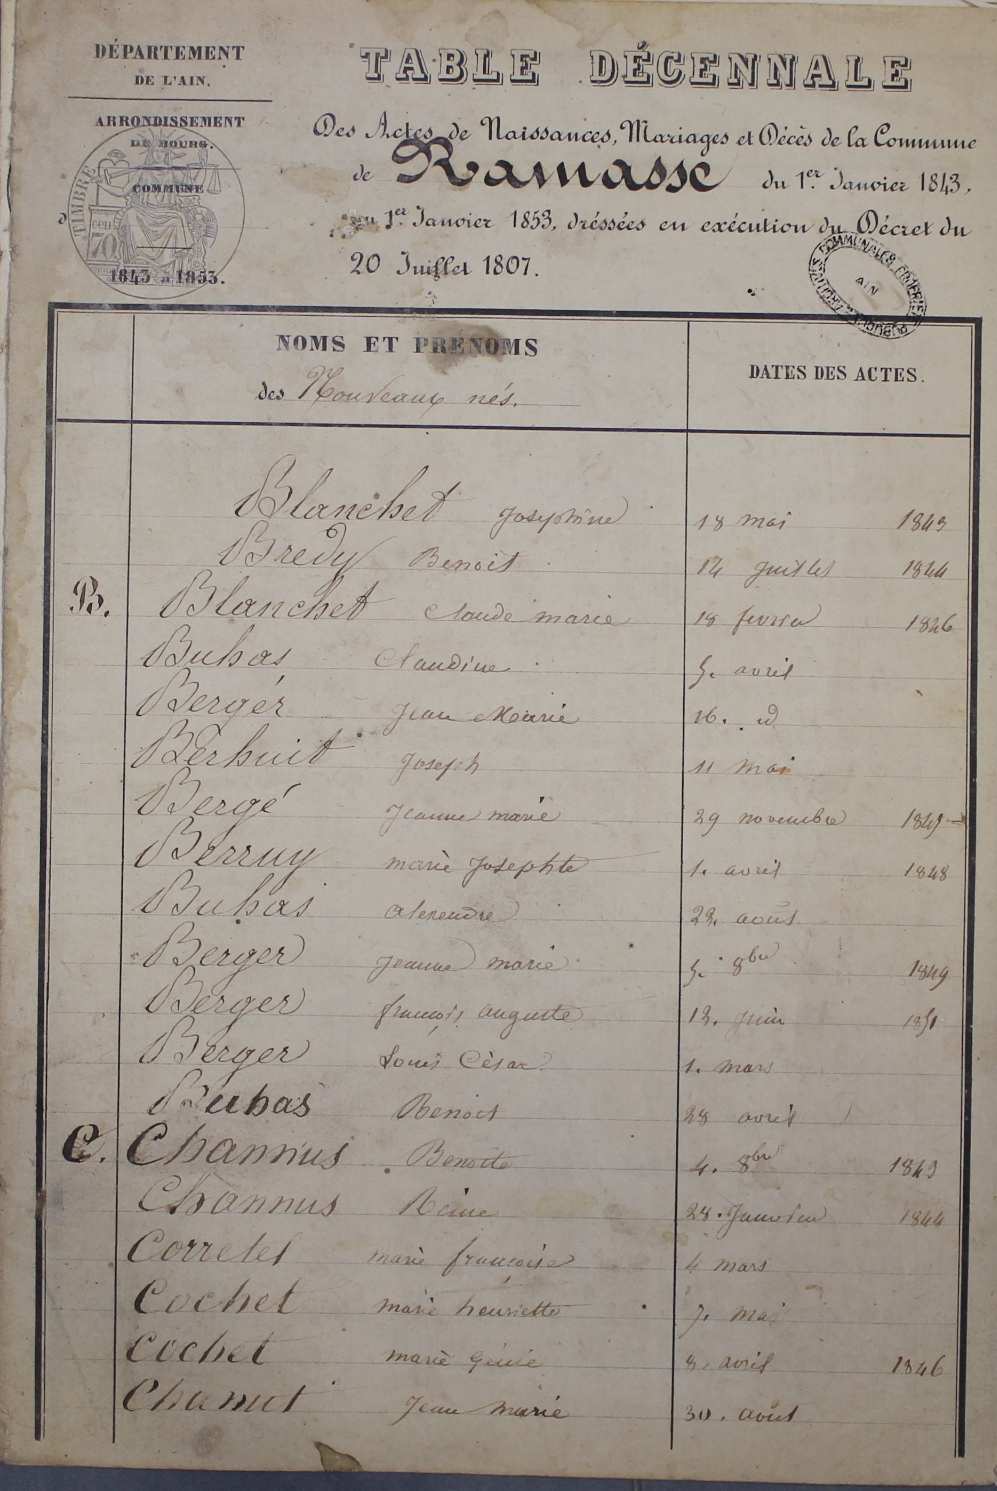 DÉPARTEMENT
DE L'AIN.
ARRONDISSEMENT
DE BOURG.
COMMUNE
TIMBRE
70
1843 à 1853.
TABLE DÉCENNALE
Des Actes de Naissances, Mariages et Décès de la Commune
de Ramasse du 1er. Janvier 1843,
au 1er. Janvier 1853, dréssées en exécution du Décret du
20 Juillet 1807.
AIN
NOMS ET PRENOMS
des Nouveaux nés.
DATES DES ACTES.
Blanchet Josephine 18 mai 1843
Bredy Benoit 14 Juillet 1844
B. Blanchet Claude marie 18 fevrier 1846
Buhas Claudine 5. avril
Berger Jean Marie 16. id
Berhuit Joseph 11 mai
Bergé Jeanne marie 29 novembre
Berruy marie Josephte 1. avril 1848
Buhas alexendre 22. août
Berger Jeanne marie 5. 8bre 1849
Berger françois auguste 12. Juin 1851
Berger Louis Cèsar 1. mars
Buhas Benoit 28 avril
C. Channus Benoite 4. 8bre 1843
Channus Reine 28. Janvier 1844
Corretel marie françoise 4 mars
Cochet marie henriette 7. mai
Cochet marie 8. avril 1846
Chanut Jean marie 30. août